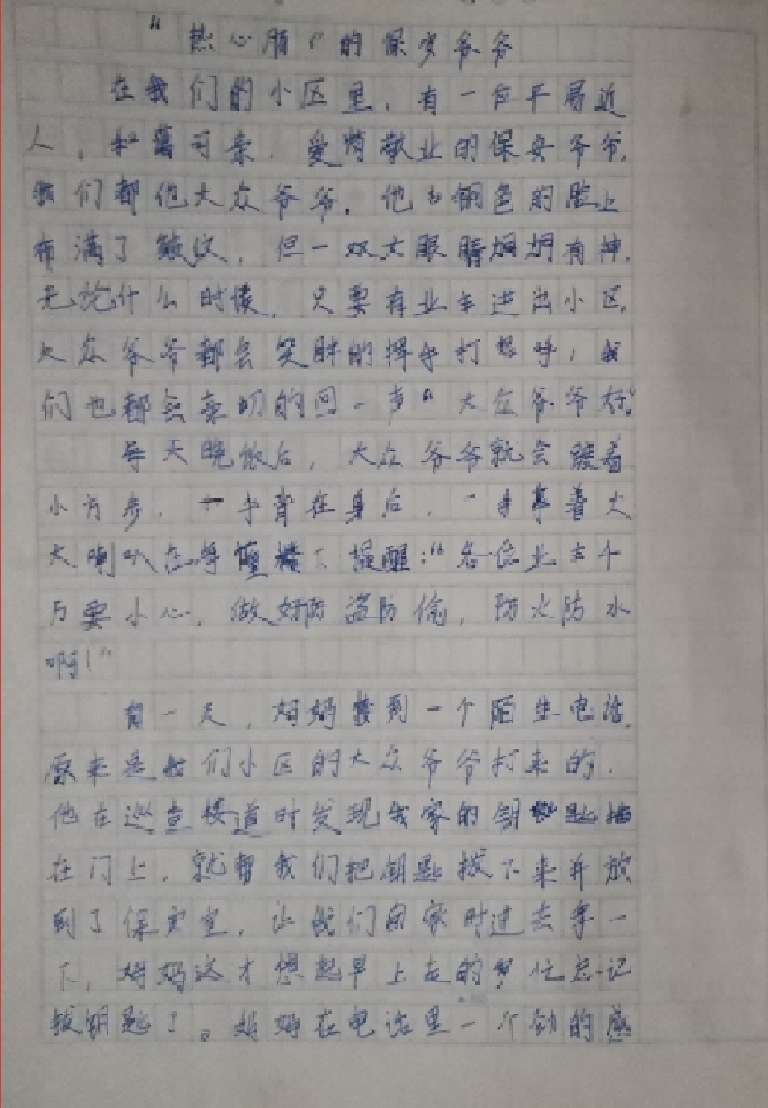 “热心肠”的保安爷爷
在我们的小区里，有一位平易近
人，和蔼可亲，爱岗敬业的保安爷爷，
我们都他大众爷爷。他古铜色的脸上
布满了皱纹，但一双大眼睛炯炯有神，
无论什么时候，只要有业主进出小区，
大众爷爷都会笑眯的挥手打招呼，我
们也都会亲切的回一声“大众爷爷好”
每天晚饭后，大众爷爷就会踱着
小方步，一手背在身后，一手拿着大
大喇叭在每楼下提醒：“各位业主千
万要小心，做好防盗防偷，防火防水
啊！”
有一天，妈妈接到一个陌生电话，
原来是我们小区的大众爷爷打来的，
他在巡查楼道时发现我家的钥匙插
在门上，就帮我们把钥匙拔下来并放
到了保安室，让我们回家时过去拿一
下，妈妈这才想起早上走的匆忙忘记
拔钥匙了。妈妈在电话里一个劲的感